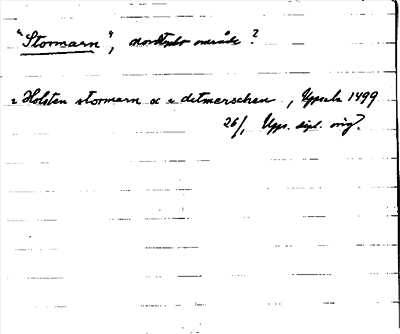 "Stormarn", nordtyskt område?
i Holsten stormarn oc i detmerschen, Uppsala 1499
26/1 Upps. dipl. orig.